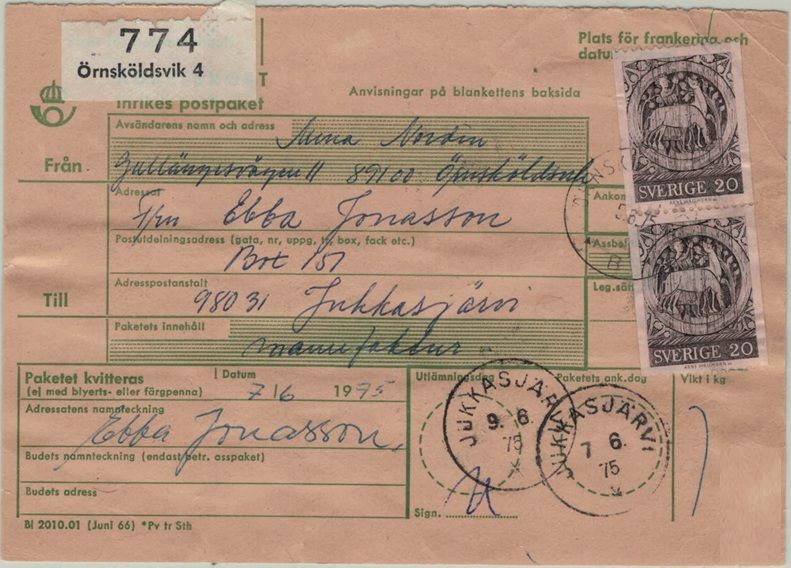 774
Örnsköldsvik 4
Plats för frankering och
datum
Inrikes postpaket
Anvisningar på blankettens baksida
Från
Avsändarens namn och adress
Anna Nordin
Gullängesvägen 11 89100 Örnsköldsvik
Adressat
Frn Ebba Jonasson
Postutdelningsadress (gata, nr, uppg, tr, box, fack etc.)
Box 151
Till
Adresspostanstalt
98031 Jukkasjärvi
Paketets innehåll
manufaktur
Ankom
Assbel
Leg.sätt
ÖRNSKÖ
5.6.75
B
SVERIGE 20
ARNE WALLHORN SC
SVERIGE 20
ARNE WALLHORN SC
Paketet kvitteras
(ej med blyerts- eller färgpenna)
Datum
7/6 1975
Adressatens namnteckning
Ebba Jonasson
Budets namnteckning (endast betr. asspaket)
Budets adress
Utlämningsdag
Paketets ank.dag
Vikt i kg
JUKKASJÄRVI
9. 6.
75
JUKKASJÄRVI
7 6.
75
Sign.
Bl 2010.01 (Juni 66) *Pv tr Sth